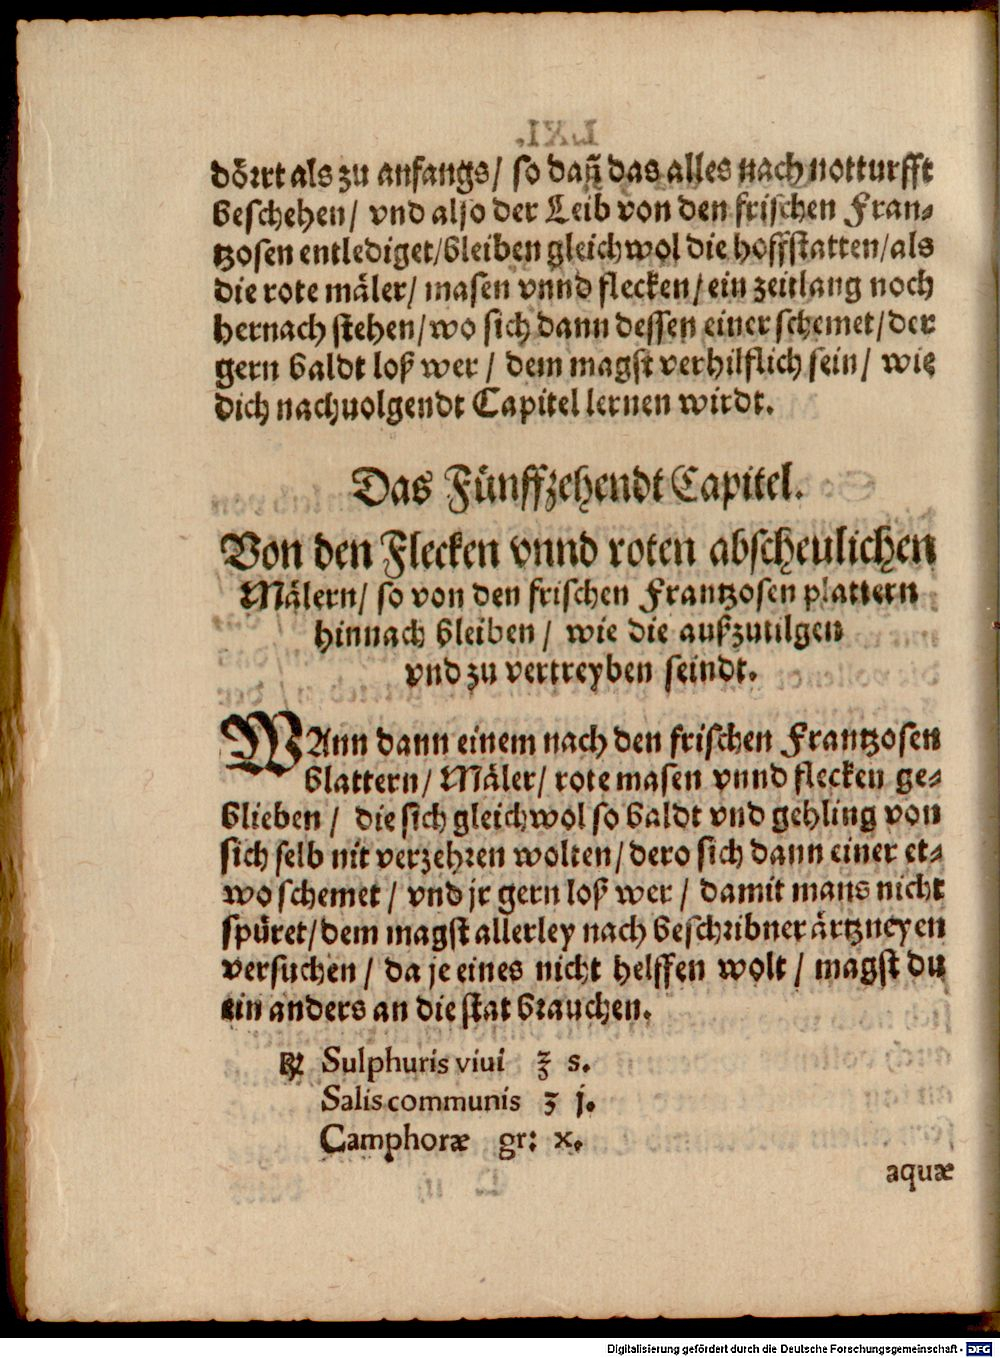 dörrt als zu anfangs/ so dañ das alles nach notturfft
beschehen/ vnd also der Leib von den frischen Fran-
tzosen entlediget/bleiben gleichwol die hoffstatten/als
die rote mäler/ masen vnnd flecken/ein zeitlang noch
hernach stehen/wo sich dann dessen einer schemet/der
gern baldt loß wer/ dem magst verhilflich sein/ wie
dich nachuolgendt Capitel lernen wirdt.
Das Fünffzehendt Capitel.
Von den Flecken vnnd roten abscheulichen
Mälern/ so von den frischen Frantzosen plattern
hinnach bleiben/ wie die außzutilgen
vnd zu vertreyben seindt.
WAnn dann einem nach den frischen Frantzosen
blattern/ Mäler/ rote masen vnnd flecken ge-
blieben/ die sich gleichwol so baldt vnd gehling von
sich selb nit verzehren wolten/dero sich dann einer et-
wo schemet/ vnd jr gern loß wer/ damit mans nicht
spüret/dem magst allerley nach beschribner ärtzneyen
versuchen/ da je eines nicht helffen wolt/ magst du
ein anders an die stat brauchen.
℞ Sulphuris viui ʒ s.
Salis communis ʒ j.
Camphoræ gr: x.
aquæ
Digitalisierung gefördert durch die Deutsche Forschungsgemeinschaft - DFG